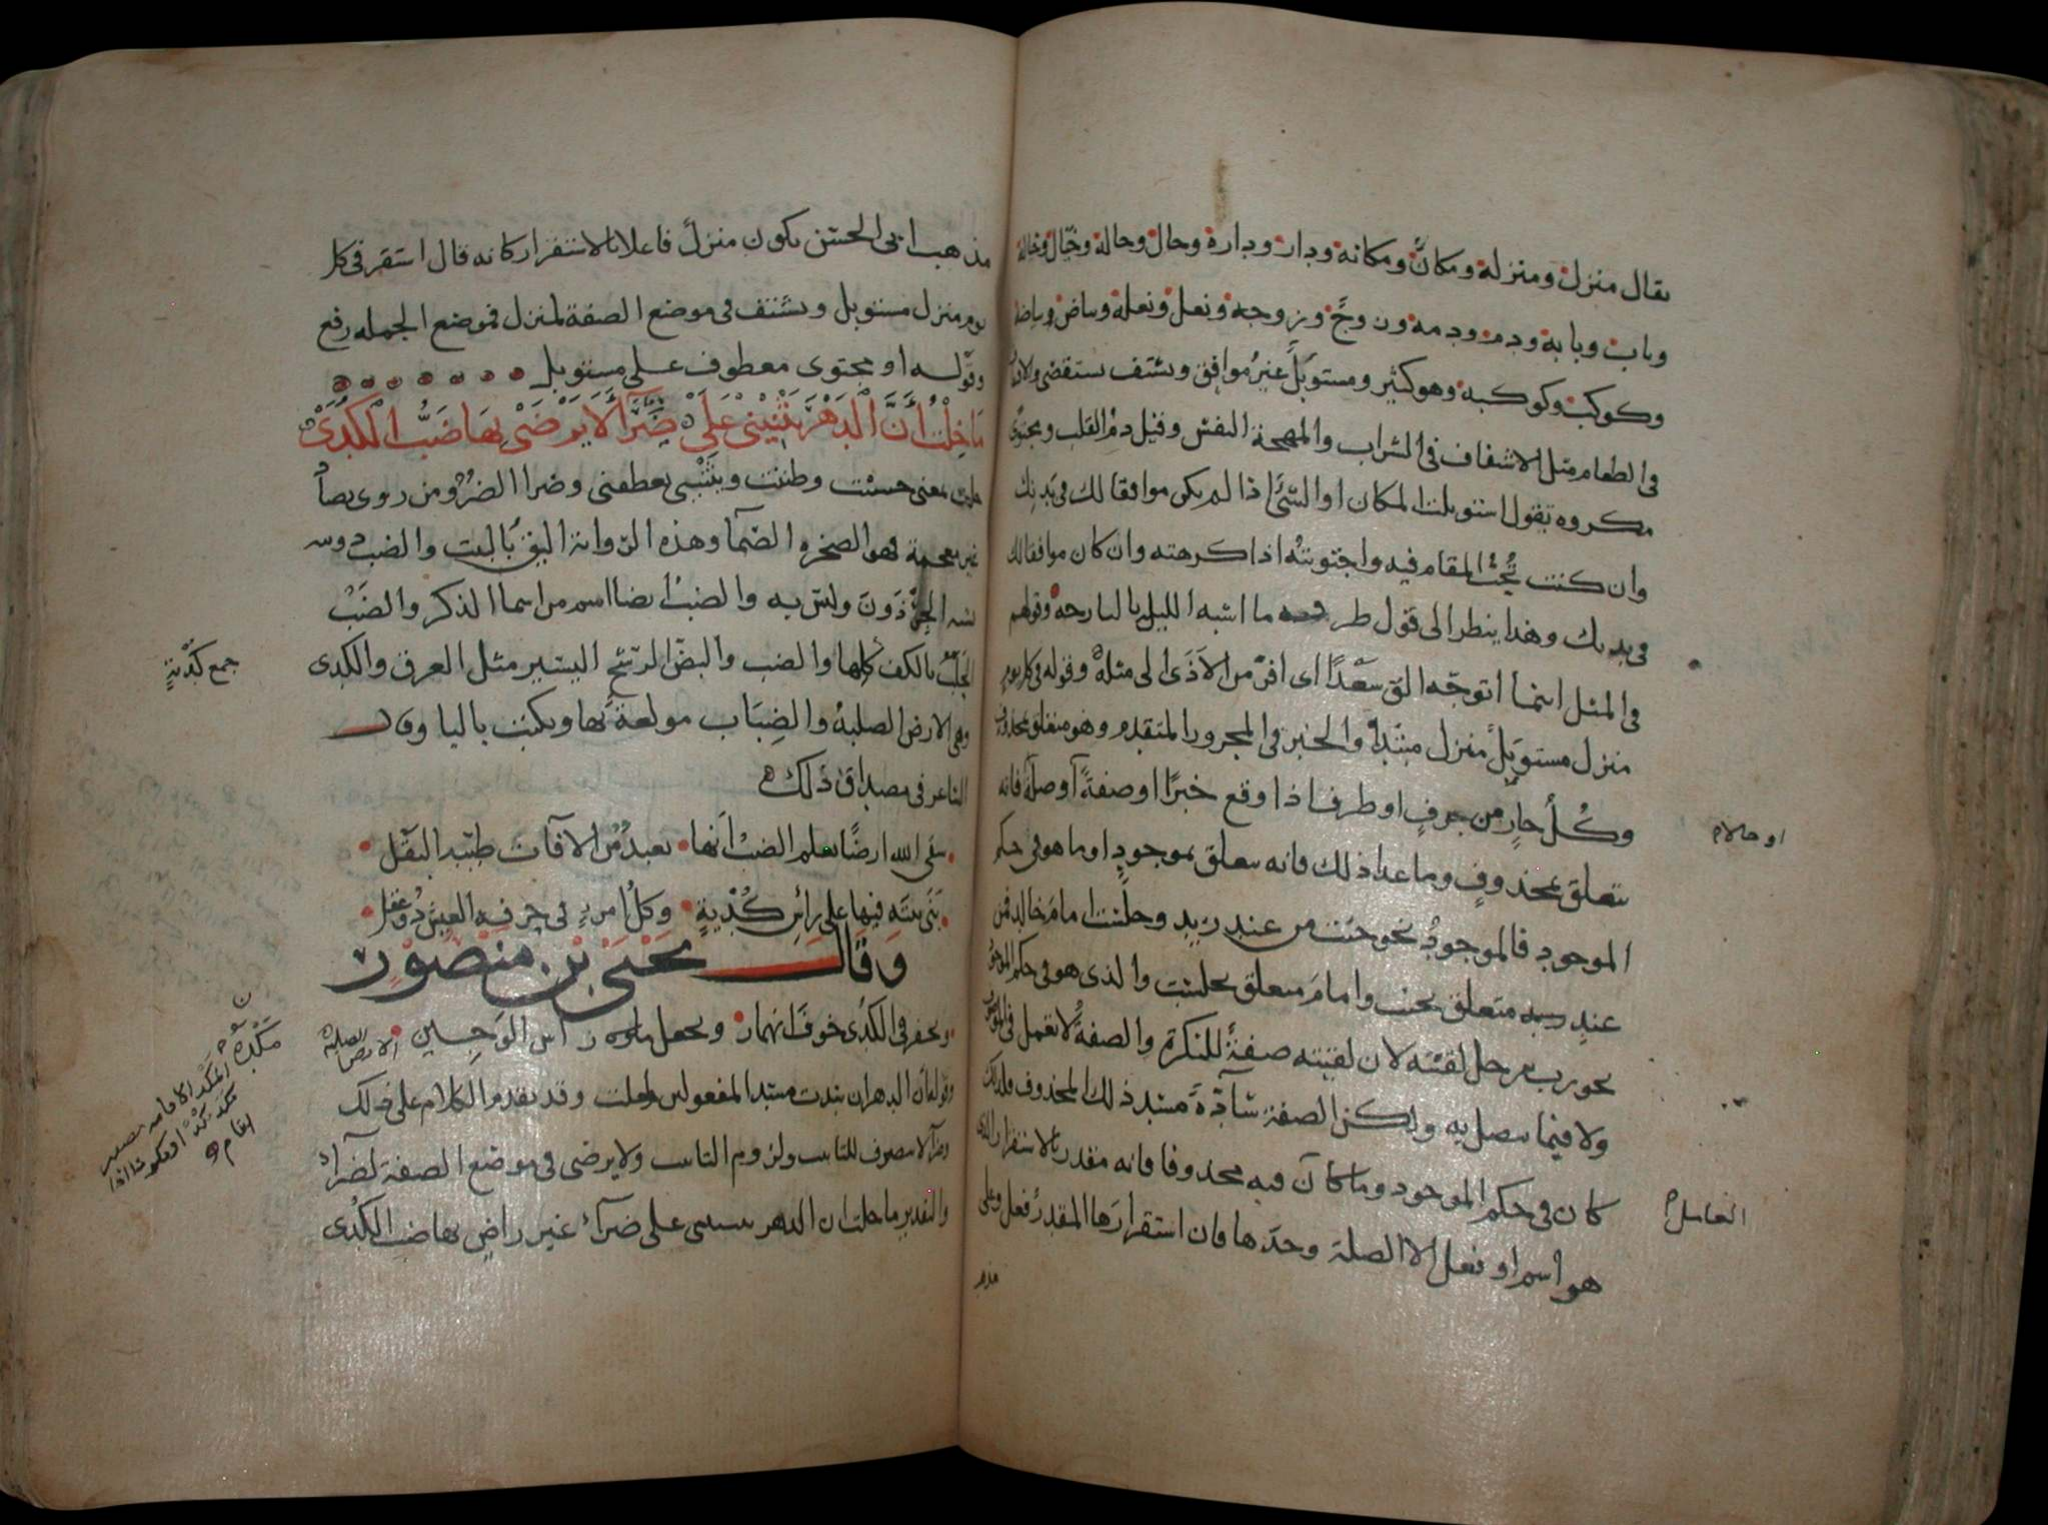 يقال منزل ومنزلة ومكان ومكانة ودار ودارة وحال وحالة وخال وخالة
وباب وبابة ودم ودمة وزوج وزوجة ونعل ونعلة وبياض وبياضة
وكوكب وكوكبة وهو كثير ومستوبل غير موافق ويشتف يستقضي والاشتفاف
في الطعام مثل الاشفاف في الشراب والمهجة النفس وقيل دم القلب ومجتوى
مكروه تقول استوبلت المكان او الشئ اذا لم يكن موافقا لك في بدنك
وان كنت تحب المقام فيه واجتويته اذا كرهته وان كان موافقا لك
في بدنك وهذا ينظر الى قول طرفة ما اشبه الليلة بالبارحة وقولهم
في المثل اينما اتوجه الق سعدا اى افر من الاذى الى مثله وقوله في كل يوم
منزل مستوبل منزل مبتدا والخبر في المجرور المتقدم وهو متعلق بمحذوف
وكل جار من حرف او ظرف اذا وقع خبرا او صفة او صلة فانه
يتعلق بمحذوف وما عدا ذلك فانه يتعلق بموجود او ما هو في حكم
الموجود فالموجود نحو جئت من عند زيد وجلست امام خالد فمن
عند زيد متعلق بجئت وامام متعلق بجلست والذى هو في حكم الموجود
نحو رب رجل لقيته لان لقيته صفة للنكرة والصفة لا تعمل في الموصوف
ولا فيما يتصل به ولكن الصفة سادة مسد ذلك المحذوف فلذلك
كان في حكم الموجود وما كان فيه محذوفا فانه مقدر بالاستقرار الذى
هو اسم او فعل الا الصلة وحدها فان استقرارها المقدر فعل وعلى
او حالا
العامل
مذهب
مذهب ابي الحسن يكون منزل فاعلا بالاستقرار كانه قال استقر في كل
يوم منزل مستوبل ويشتف في موضع الصفة لمنزل فموضع الجملة رفع
وقوله او مجتوى معطوف على مستوبل
مَا خِلْتُ أَنَّ الْدَهْرَ يَثْنِيْنِي عَلَىْ ضَرَّآءَ لاَ يَرْضَىْ بِهَا ضَبُّ الْكُدَىْ
خلت بمعنى حسبت وظننت ويثنيني يعطفني وضراا الضر ومن روى بصاد
غير معجمة فهو الصخرة الصما وهذه الرواية اليق بالبيت والضب دويبة
تشبه الحرذون وليس به والضب ايضا اسم من اسما الذكر والضب
الحلب بالكف كلها والضب والبض الرشح اليسير مثل العرق والكدى
وهي الارض الصلبة والضباب مولعة بها ويكتب باليا وقال
الشاعر في مصداق ذلك
سقى الله ارضا يعلم الضب انها بعيد من الافات طيبة البقل
بنى بيته فيها على راس كدية وكل امرئ في حرفة العيش ذو عقل
وَقَال يحيى بن منصور
ويحفر في الكدى خوف انهيار ويجعل
الارض الصلبة
وقوله ان الدهر ان سدت مسد المفعولين لخلت وقد تقدم الكلام على ذلك
وضرآ لا ينصرف للتانيث ولزوم التانيث ولا يرضى في موضع الصفة لضرآ
والتقدير ما خلت ان الدهر يثنيني على ضرآء غير راض بها ضب الكدى
جمع كُدْيَةٍ